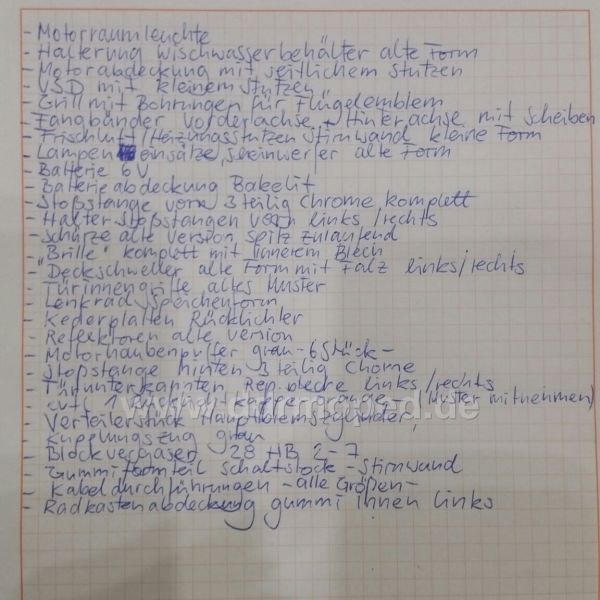 - Motorraumleuchte
- Halterung Wischwasserbehälter alte Form
- Motorabdeckung mit seitlichem Stutzen
- VSD mit kleinem Stutzen
- Grill mit Bohrungen für Flügelemblem
- Fangbänder Vorderachse + Hinterachse mit Scheiben
- Frischluft-/Heizungsstutzen Stirnwand kleine Form
- Lampen einsätze Scheinwerfer alte Form
- Batterie 6V
- Batterieabdeckung Bakelit
- Stoßstange vorn 3teilig Chrome komplett
- Halter Stoßstangen vorn links/rechts
- Schürze alte Version Spitz zulaufend
- "Brille" komplett mit innerem Blech
- Deckschweller alte Form mit Falz links/rechts
- Türinnengriffe altes Muster
- Lenkrad Speichenform
- Kederplatten Rücklichter
- Reflektoren alte Version
- Motorhaubenpuffer grau - 6 Stück -
- Stoßstange hinten 3teilig Chorme
- Türunterkannten Rep.bleche links/rechts
evtl. 1 (Muster mitnehmen)
www.brumaped.de
- Verteilerstück Hauptbremszylinder
- Kupplungszug grau
- Blockvergaser 28 HB 2-7
- Gummiformteil Schaltstock - Stirnwand
- Kabeldurchführungen - alle Größen -
- Radkastenabdeckung gummi innen links